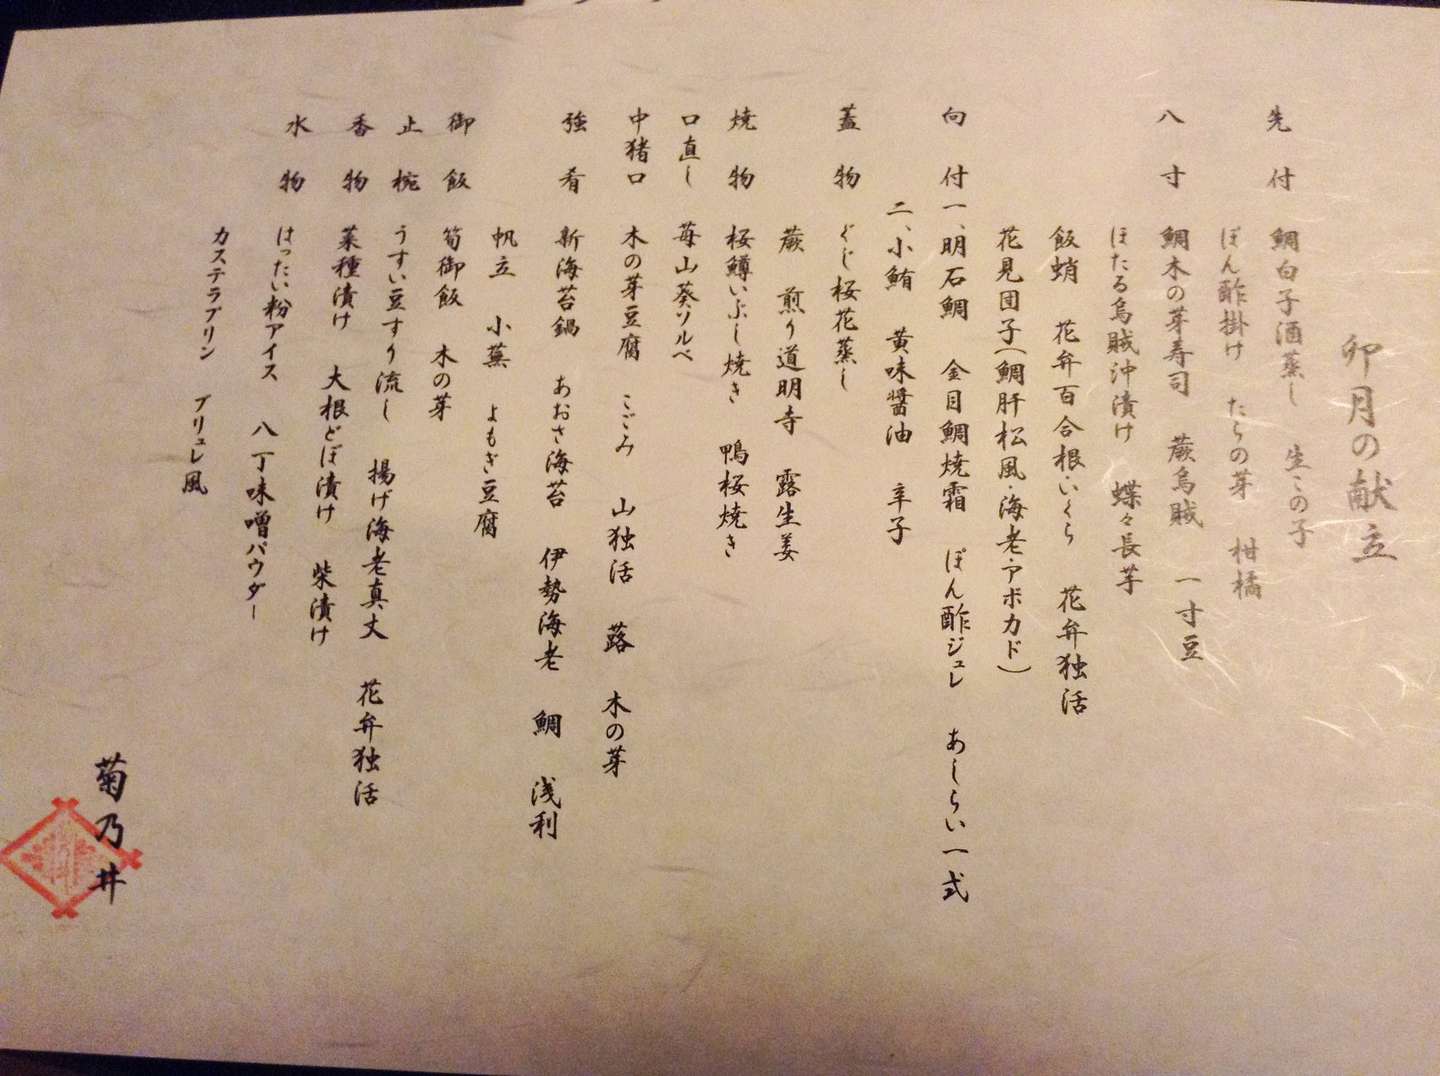 卯月の献立
先付 鯛白子酒蒸し 生この子
ぽん酢掛け たらの芽 柑橘
八寸 鯛木の芽寿司 蕨烏賊 一寸豆
ほたる烏賊沖漬け 蝶々長芋
飯蛸 花弁百合根・いくら 花弁独活
花見団子(鯛肝松風・海老・アボカド)
向付 一、明石鯛 金目鯛焼霜 ぽん酢ジュレ あしらい一式
二、小鮪 黄味醤油 辛子
蓋物 ぐじ桜花蒸し
蕨 煎り道明寺 露生姜
焼物 桜鱒いぶし焼き 鴨桜焼き
口直し 苺山葵ソルベ
中猪口 木の芽豆腐 こごみ 山独活 蕗 木の芽
強肴 新海苔鍋 あおさ海苔 伊勢海老 鯛 浅利
帆立 小蕪 よもぎ豆腐
御飯 筍御飯 木の芽
止椀 うすい豆すり流し 揚げ海老真丈 花弁独活
香物 菜種漬け 大根どぼ漬け 柴漬け
水物 はったい粉アイス 八丁味噌パウダー
カステラプリン ブリュレ風
菊乃井